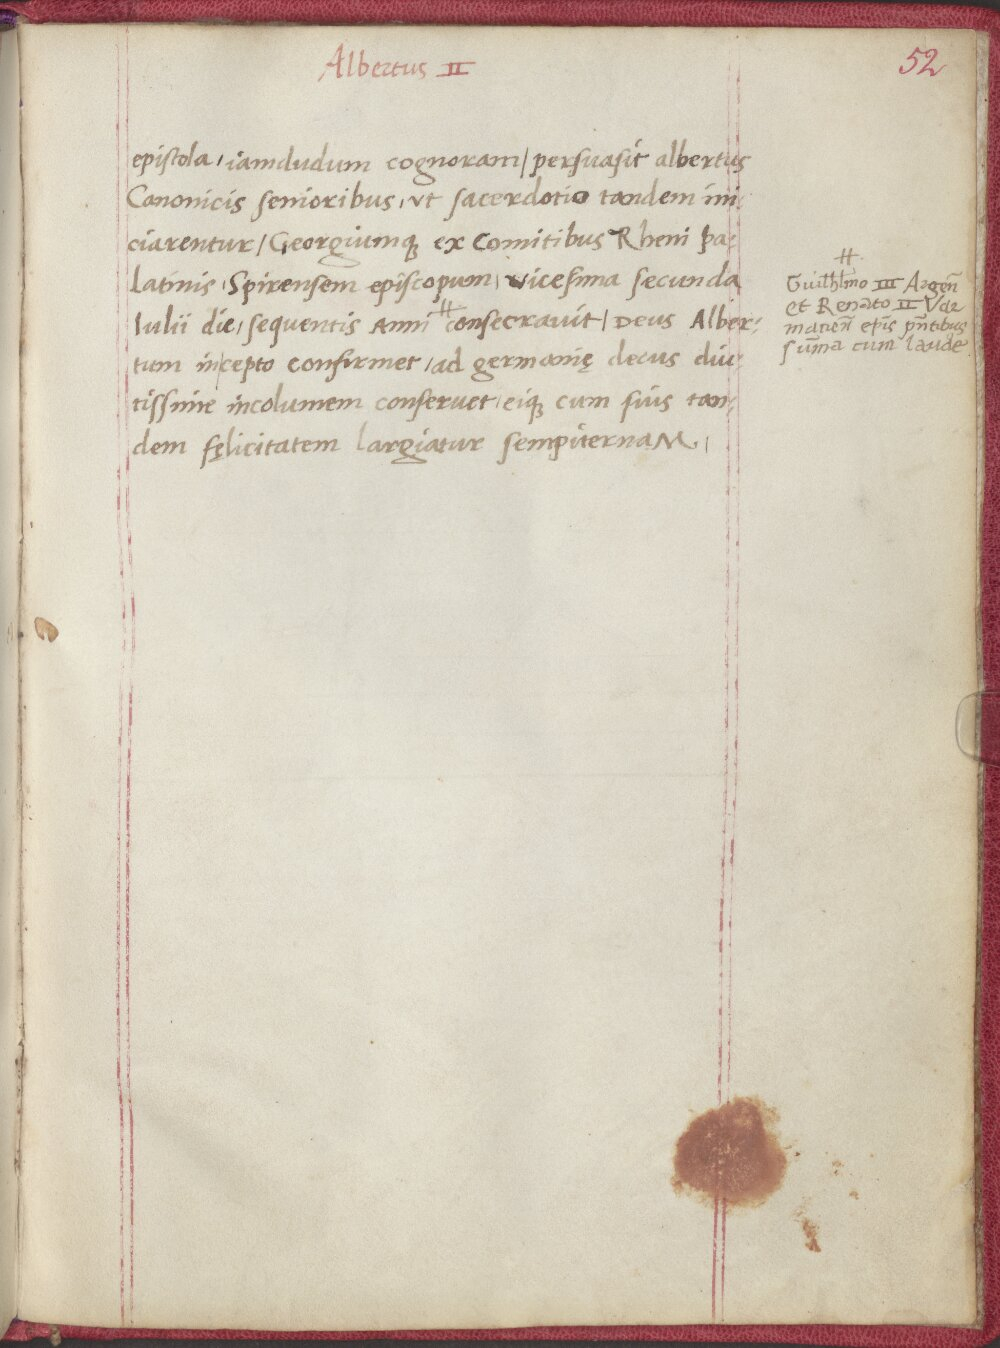 Albertus II
52
epistola, iamdudum cognoram/ persuasit albertus
Canonicis senioribus, ut sacerdotio tandem ini-
ciarentur/ Georgiumq; ex Comitibus Rheni pa-
latinis, Spirensem episcopum, vicesima secunda
Iulii die, sequentis Anni # consecravit/ Deus Alber-
tum incepto confirmet, ad germanię decus diu-
tissime incolumem conservet, eiq; cum suis tan-
dem fęlicitatem largiatur sempiternaM,
#
Guilhlmo III Argeñ
et Renato II Vae
matieñ epis pñtibus
sum̄a cum laude